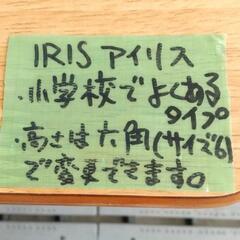 IRIS アイリス
・小学校でよくある
タイプ
・高さは六角(サイズ6)
で変更できます。